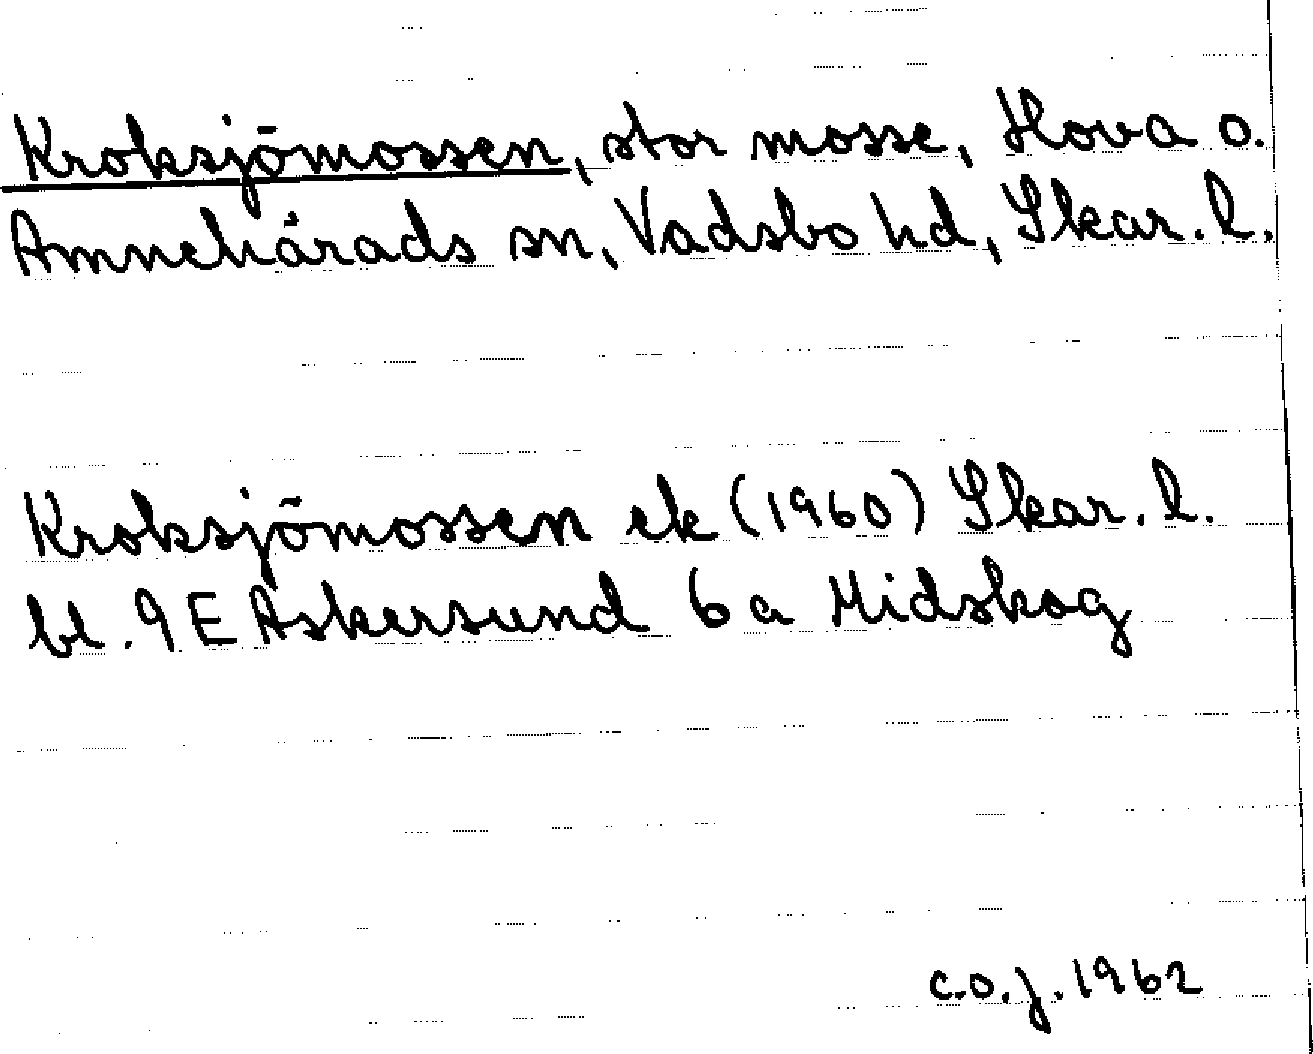 Kroksjömossen, stor mosse, Hova o.
Amnehärads sn, Vadsbo hd, Skar. l.
Kroksjömossen ek (1960) Skar. l.
bl. 9 E Askersund 6 a Midskog
C.O.J. 1962